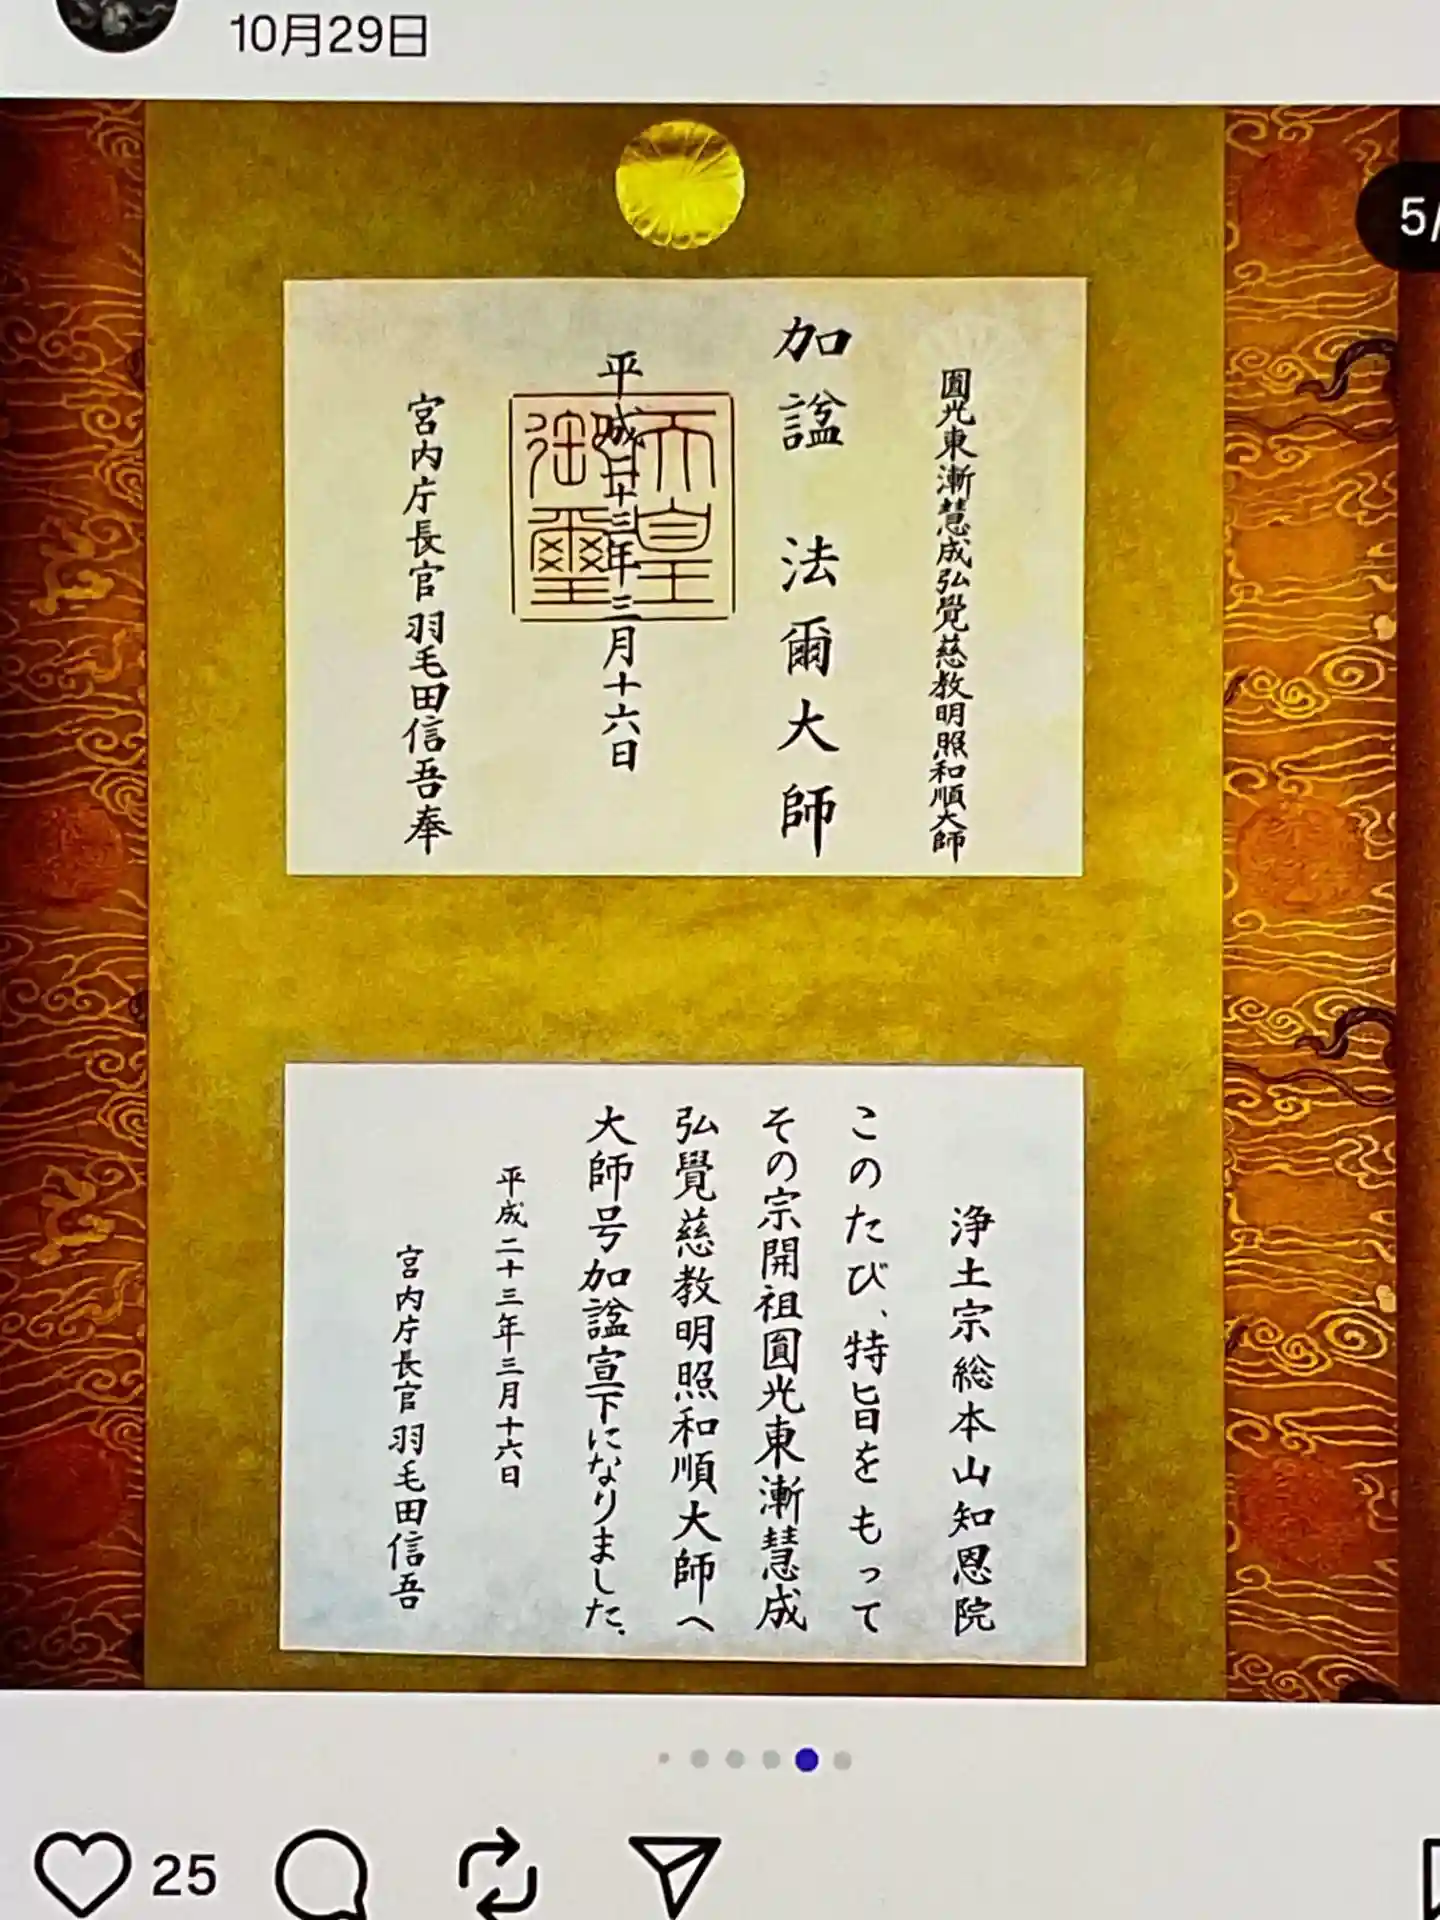 10月29日
5/
圓光東漸慧成弘覺慈教明照和順大師
加諡　法爾大師
平成二十三年三月十六日
天皇
御璽
宮内庁長官　羽毛田信吾奉
浄土宗総本山知恩院
このたび、特旨をもって
その宗開祖圓光東漸慧成
弘覺慈教明照和順大師へ
大師号加諡宣下になりました。
平成二十三年三月十六日
宮内庁長官　羽毛田信吾
25